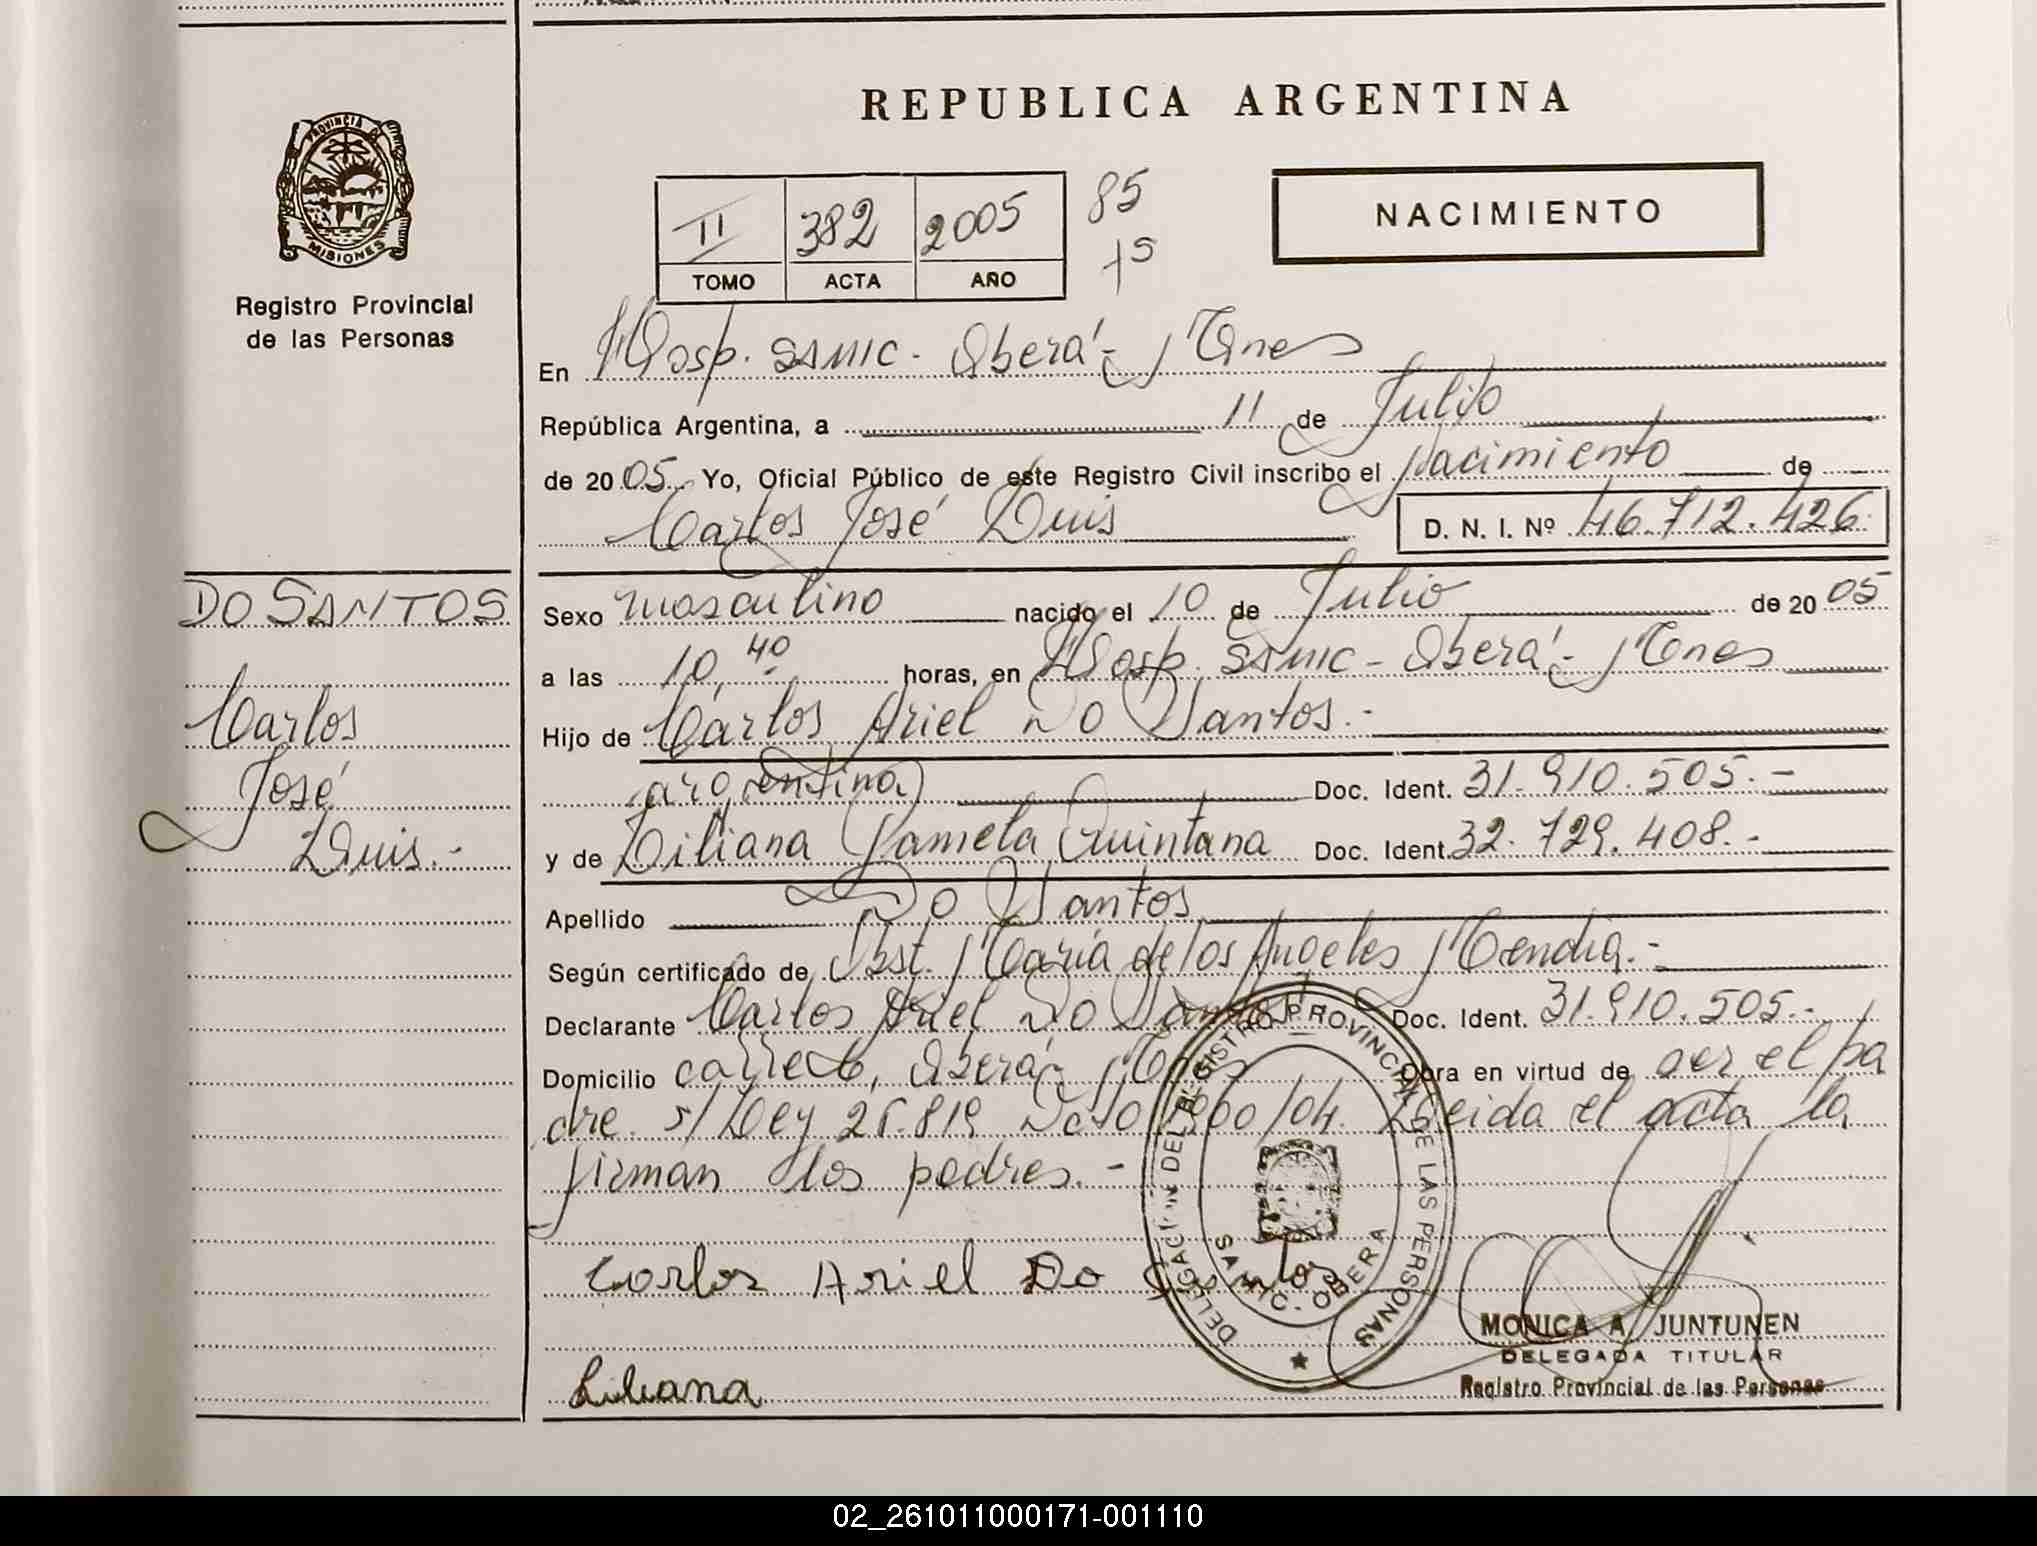 REPUBLICA ARGENTINA
PROVINCIA DE
MISIONES
Registro Provincial
de las Personas
II 382 2005 85
TOMO ACTA AÑO
NACIMIENTO
En Hosp. SAMIC - Oberá - Mnes
República Argentina, a 11 de Julio
de 2005 Yo, Oficial Público de este Registro Civil inscribo el nacimiento de
Carlos José Luis D. N. I. Nº 46.712.426
DO SANTOS
Carlos
José
Luis.-
Sexo masculino nacido el 10 de Julio de 2005
a las 10,40 horas, en Hosp. SAMIC - Oberá - Mnes
Hijo de Carlos Ariel Do Santos.-
argentina Doc. Ident. 31.910.505.-
y de Liliana Pamela Quintana Doc. Ident. 32.729.408.-
Apellido Do Santos
Según certificado de Obst. María de los Angeles Mendia.-
Declarante Carlos Ariel Do Santos Doc. Ident. 31.910.505.-
Domicilio Oberá - Mnes Obra en virtud de ser el pa
dre. s/Ley 25.819 /04. Leida el acta la
firman los padres.-
Carlos Ariel Do Santos
Liliana
DELEGACION DEL REGISTRO PROVINCIAL DE LAS PERSONAS
SAMIC - OBERA
MONICA A JUNTUNEN
DELEGADA TITULAR
Registro Provincial de las Personas
02_261011000171-001110